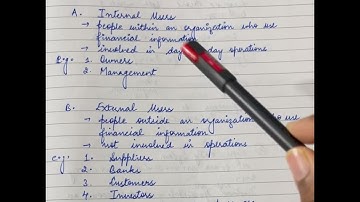 A. Internal Users
→ people within an organization who use
financial information
→ involved in day day operations
e.g: 1. Owners
2. Management
B. External Users
→ people outside an organization who use
financial information
→ not involved in operations
e.g: 1. Suppliers
2. Banks
3. Customers
4. Investors